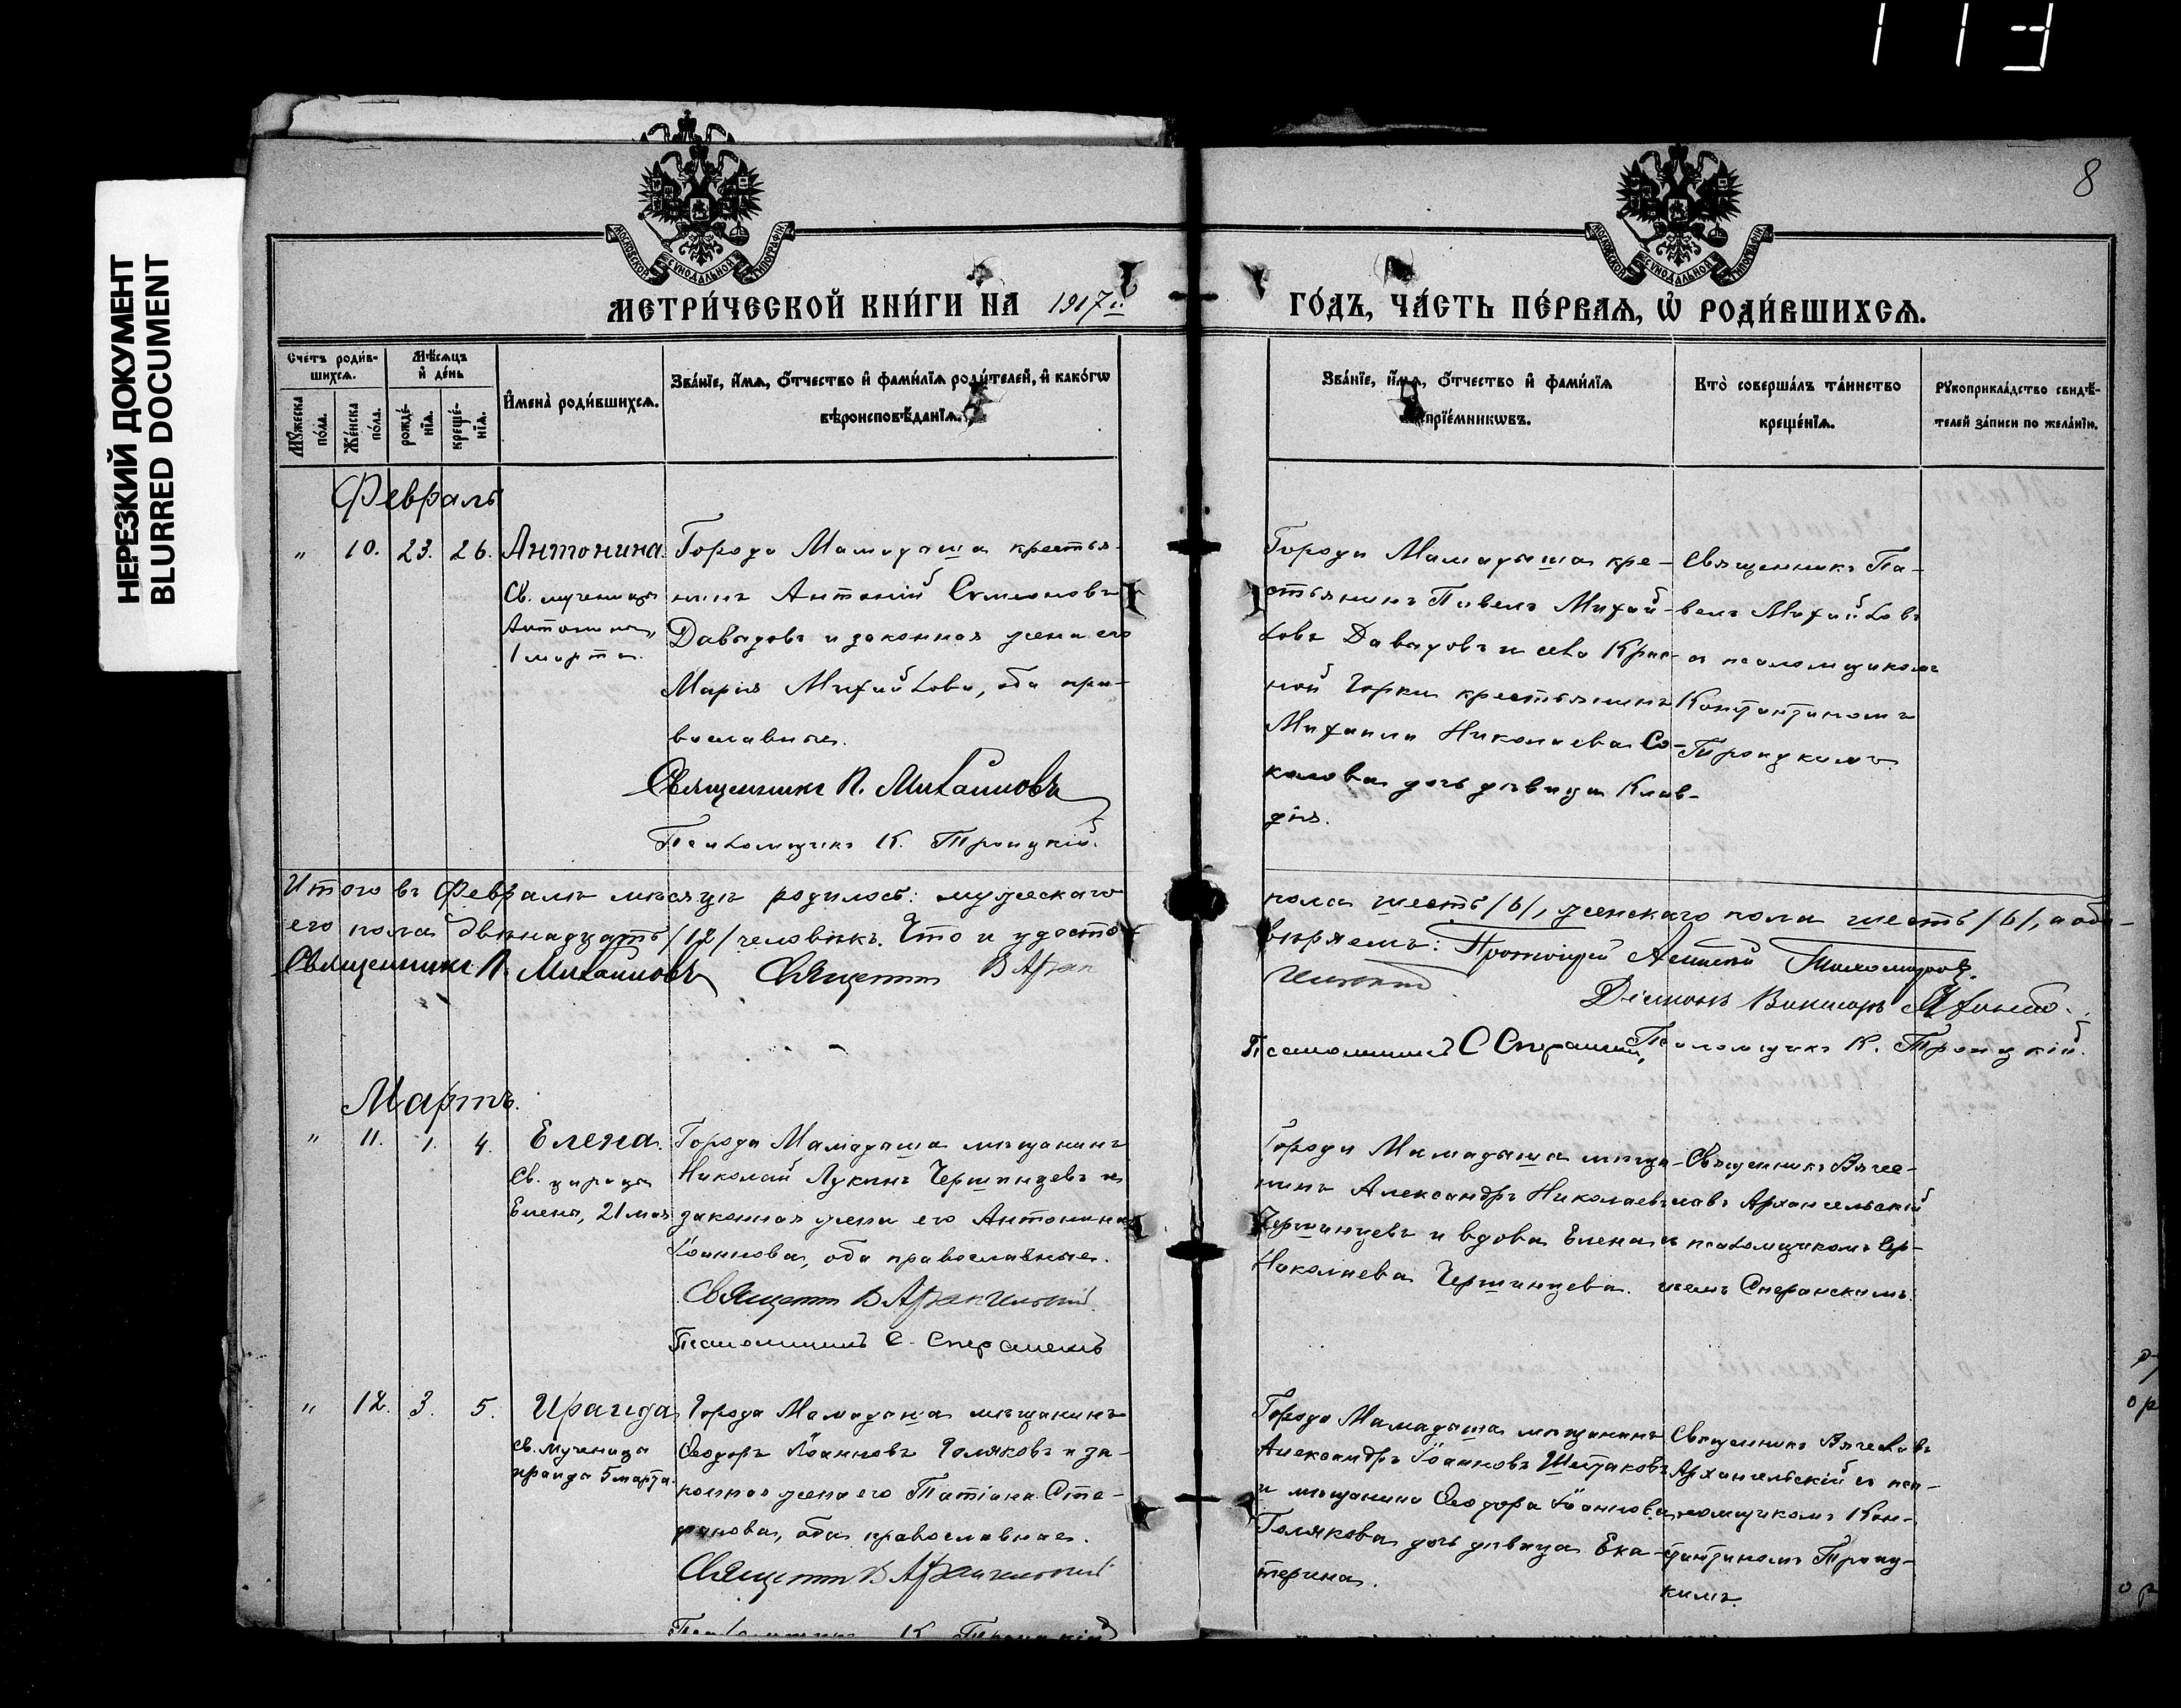 113
8
НЕРЕЗКИЙ ДОКУМЕНТ
BLURRED DOCUMENT
МОСКОВСКОЙ СѴНОДАЛЬНОЙ ТИПОГРАФІИ
МОСКОВСКОЙ СѴНОДАЛЬНОЙ ТИПОГРАФІИ
МЕТРИ́ЧЕСКОЙ КНИ́ГИ НА 1917й
ГО́ДЪ, ЧА́СТЬ ПЕ́РВАѦ, Ѡ РОДИ́ВШИХСѦ.
Сче́тъ роди́в-
шихсѧ.
Мꙋ́жеска
по́ла.
Же́нска
по́ла.
Мѣ́сѧцъ
и҆ де́нь
рожде́-
нїѧ.
креще́-
нїѧ.
И҆мена̀ роди́вшихсѧ.
Зва́нїе, и҆́мѧ, ѻ҆́тчество и҆ фами́лїѧ роди́телей, и҆ како́гѡ
вѣроисповѣ́данїѧ.
Зва́нїе, и҆́мѧ, ѻ҆́тчество и҆ фами́лїѧ
прїе́мникѡвъ.
Кто̀ соверша́лъ та́инство
креще́нїѧ.
Рꙋкоприкла́дство свидѣ́-
телей за́писи по жела́нїю.
Февраль
" 10. 23. 26. Антонина
Св. мученицы
Антонины,
1 марта.
Города Мамадыша крестья-
нинъ Антоній Симеоновъ
Давыдовъ и законная жена его
Марія Михайлова, оба пра-
вославные.
Священникъ П. Михайловъ
Псаломщикъ К. Троицкій.
Города Мамадыша кре-
стьянинъ Павелъ Михай-
ловъ Давыдовъ и села Крас-
ной Горки крестьянина
Михаила Николаева Со-
колова дочь дѣвица Клав-
дія.
Священникъ Па-
велъ Михайловъ
съ псаломщикомъ
Константиномъ
Троицкимъ.
Итого въ Февралѣ мѣсяцѣ родилось: мужескаго
пола шесть /6/, женскаго пола шесть /6/, а обо-
его пола двѣнадцать /12/ человѣкъ. Что и удосто-
вѣряемъ: Протоіерей
Священникъ П. Михайловъ Священник В Архан
гельский
Діаконъ Викторъ
Псаломщикъ С Сперанский, Псаломщикъ К. Троицкій.
Мартъ.
" 11. 1. 4. Елена.
Св. царицы
Елены, 21 мая
Города Мамадыша мѣщанинъ
Николай Лукинъ Чершинцевъ и
законная жена его Антонина
Іоаннова, оба православные.
Священник В Архангельский
Псаломщикъ С. Сперанский
Города Мамадыша мѣща-
нинъ Александръ Николаевъ
Чершинцевъ и вдова Елена
Николаева Чершинцева.
Священникъ Вяче-
славъ Архангельскій
съ псаломщикомъ Сер-
гіемъ Сперанскимъ.
" 12. 3. 5. Ираида
Св. мученицы
Ираиды 5 марта.
Города Мамадыша мѣщанинъ
Ѳеодоръ Іоанновъ Поляковъ и за-
конная жена его Татіана Сте-
фанова, оба православные.
Священник В Архангельский
Псаломщикъ К Троицкій
Города Мамадыша мѣщанинъ
Александръ Іоанновъ Шестаковъ
и мѣщанина Ѳеодора Іоаннова
Полякова дочь дѣвица Ека-
терина.
Священникъ Вячеславъ
Архангельскій съ пса-
ломщикомъ Кон-
стантиномъ Троиц-
кимъ.